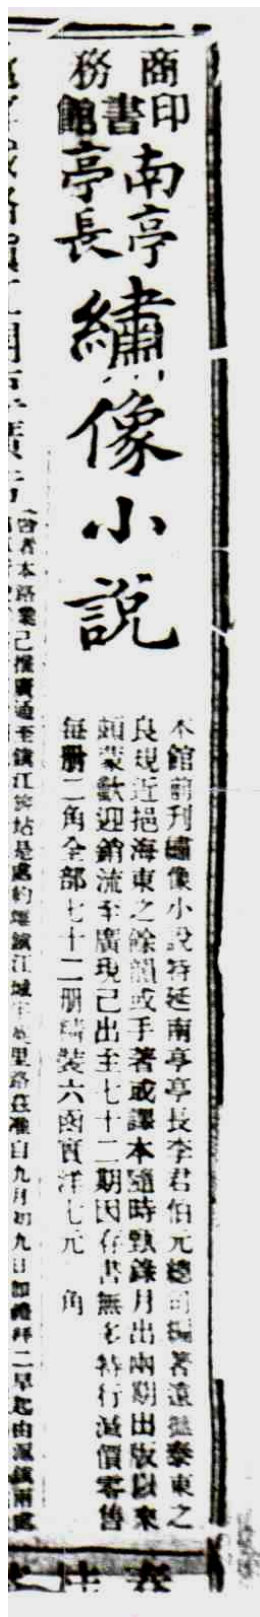 商務
印書館
南亭
亭長
繡像小說
本館前刊繡像小說特延南亭亭長李君伯元總司編著遠摭泰東之
良規近挹海東之餘韻或手著或譯本隨時甄錄月出兩期出版以來
頗蒙歡迎銷流至廣現已出至七十二期因存書無多特行減價零售
每冊二角全部七十二冊精裝六函實洋七元 角
者本路業已推廣通至鎮江
站是處約
鎮江城
里路茲准自九月初九日即禮拜二早起由滬鎮兩處